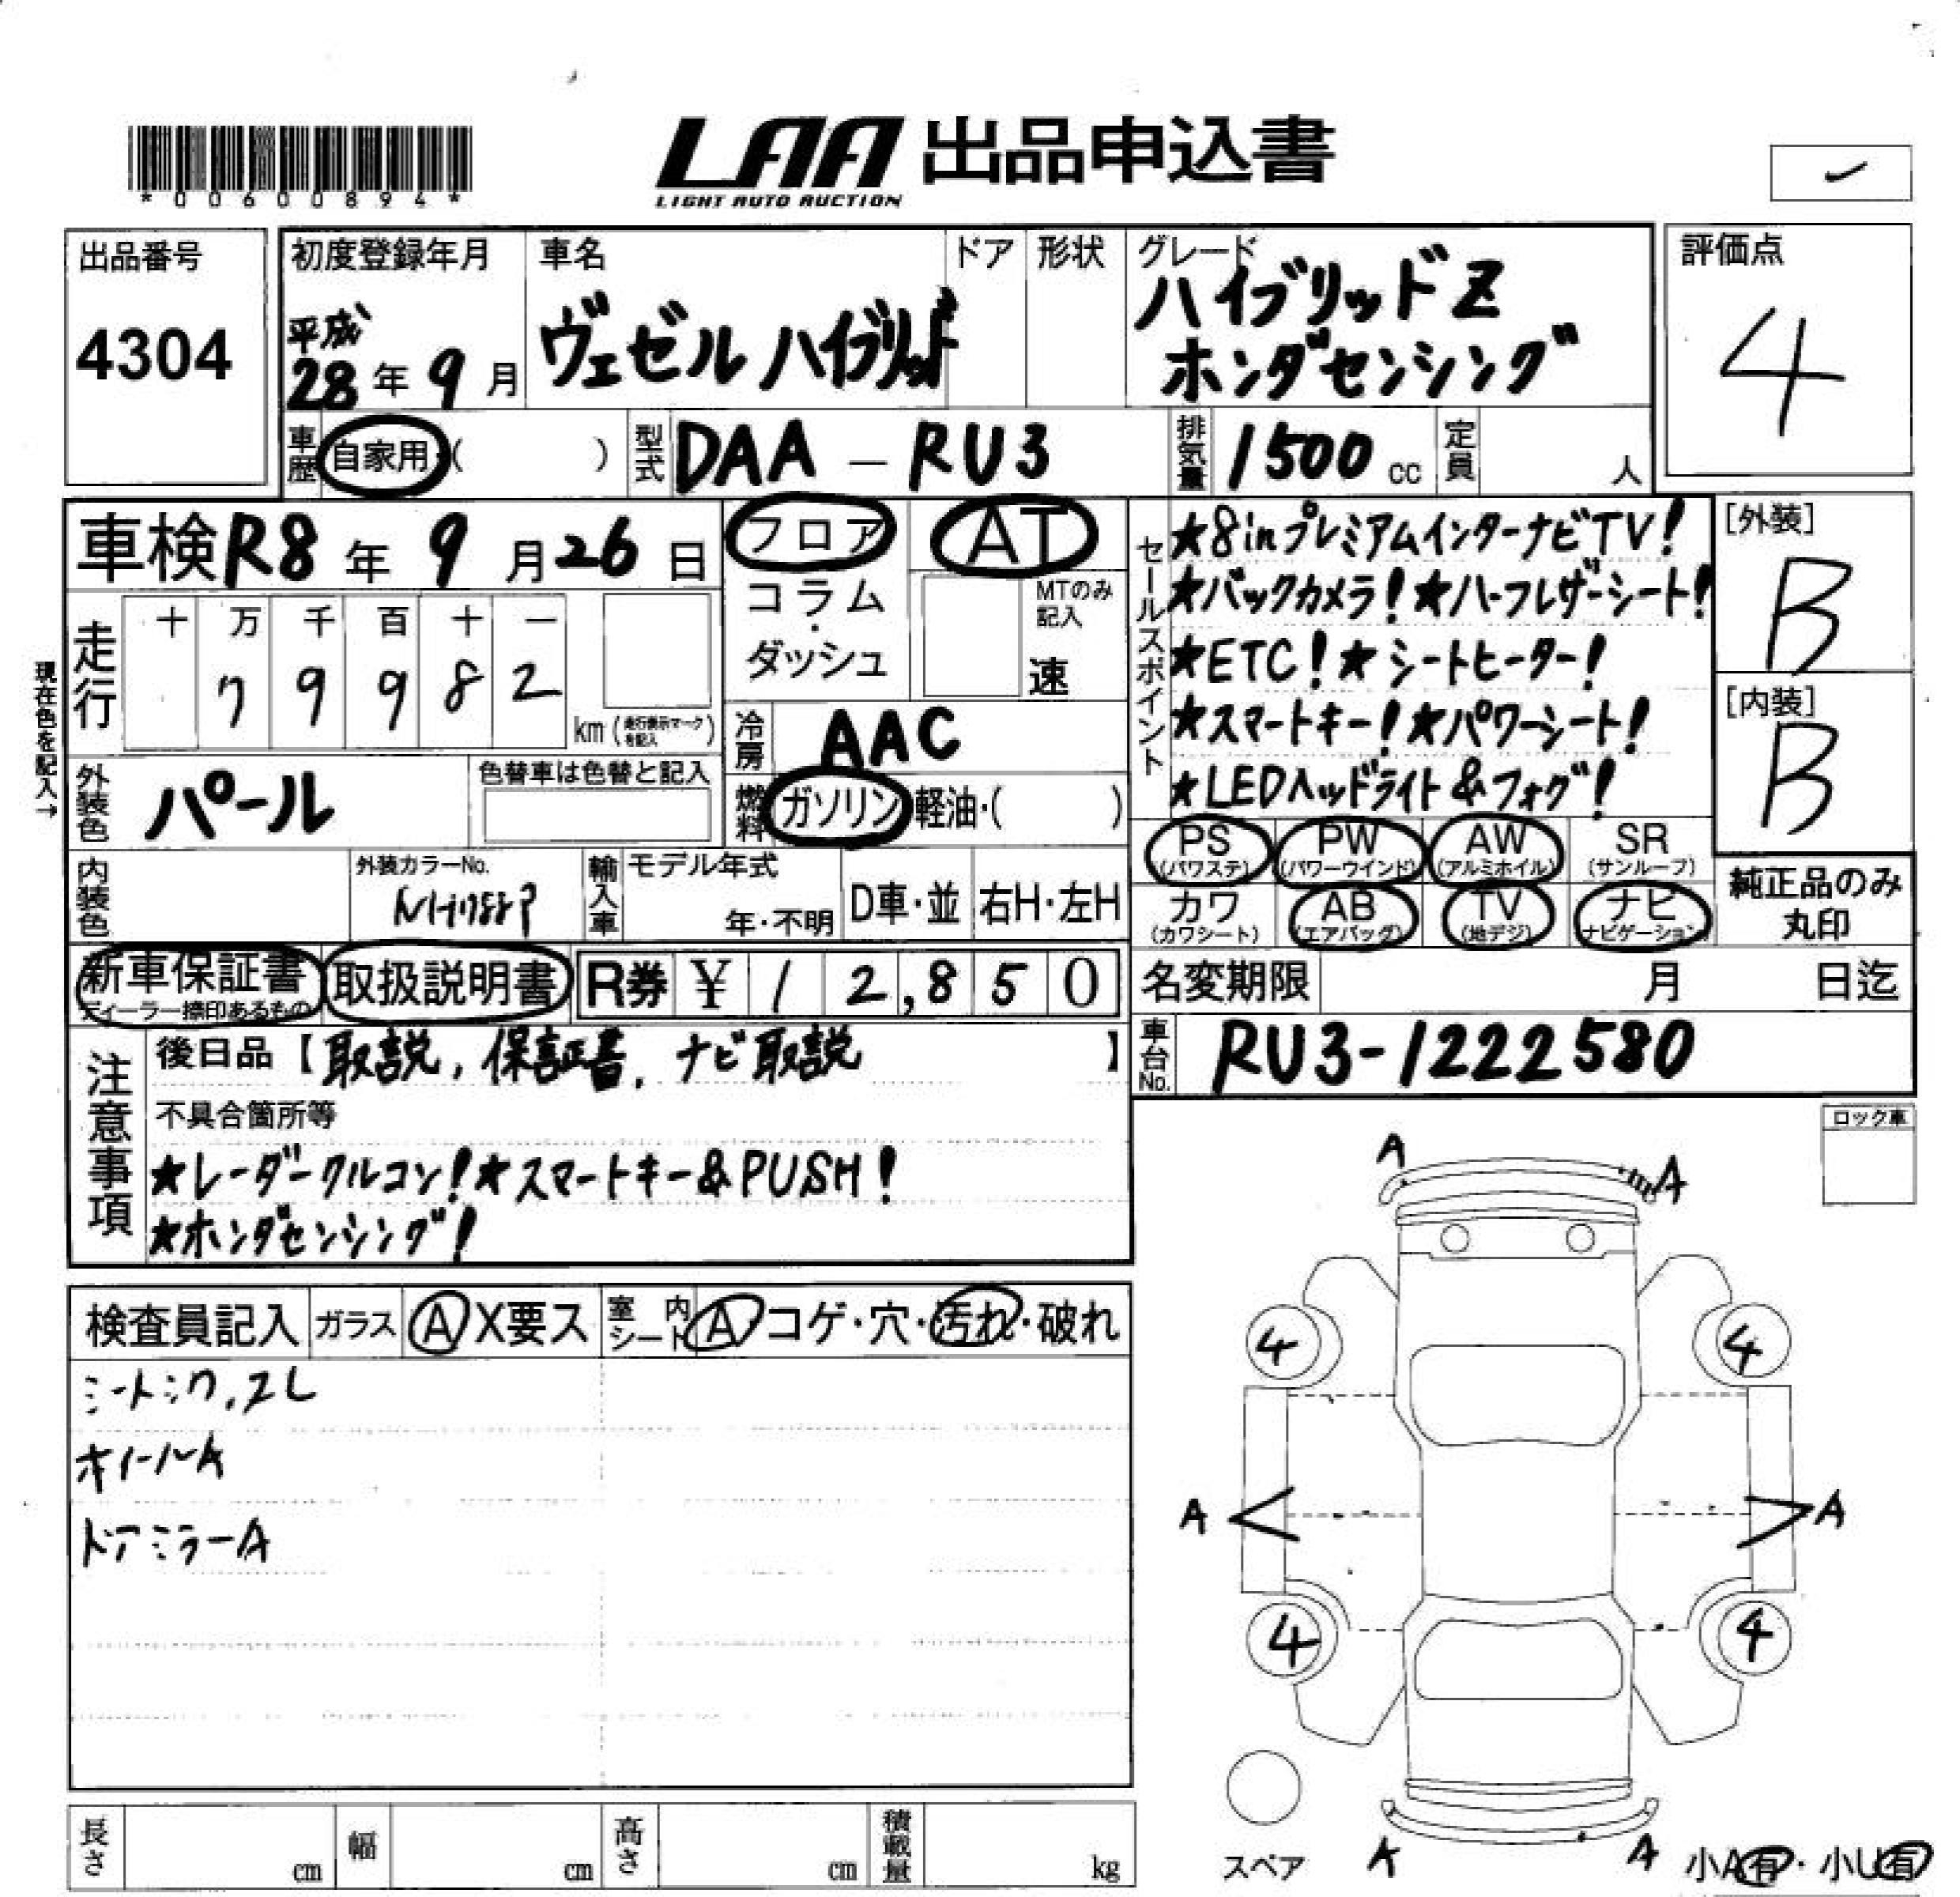 *00600894*
LAA 出品申込書
LIGHT AUTO AUCTION
出品番号
4304
初度登録年月
平成
28年9月
車名
ヴェゼル ハイブリッド
ドア
形状
グレード
ハイブリッドZ
ホンダセンシング
評価点
4
車歴
自家用・( )
型式
DAA－RU3
排気量
1500cc
定員
人
車検R8年9月26日
フロア
コラム
・
ダッシュ
AT
MTのみ
記入
速
セールスポイント
★8inプレミアムインターナビTV!
★バックカメラ!★ハーフレザーシート!
★ETC!★シートヒーター!
★スマートキー!★パワーシート!
★LEDヘッドライト&フォグ!
[外装]
B
[内装]
B
現在色を記入→
走行
十 万 千 百 十 一
7 9 9 8 2
km(走行表示マークを記入)
冷房
AAC
外装色
パール
色替車は色替と記入
燃料
ガソリン・軽油・( )
PS
(パワステ)
PW
(パワーウインド)
AW
(アルミホイル)
SR
(サンルーフ)
カワ
(カワシート)
AB
(エアバッグ)
TV
(地デジ)
ナビ
ナビゲーション
純正品のみ
丸印
内装色
外装カラーNo.
輸入車
モデル年式
年・不明
D車・並
右H・左H
新車保証書
ディーラー捺印あるもの
取扱説明書
R券 ¥ 12,850
名変期限
月 日迄
車台No.
RU3-1222580
注意事項
後日品【取説, 保証書, ナビ取説】
不具合箇所等
★レーダークルコン!★スマートキー&PUSH!
★ホンダセンシング!
ロック車
検査員記入
ガラス
A X要ス
室内シート
A コゲ・穴・汚れ・破れ
ホイールA
ドアミラーA
A A
4 4
A A
4 4
スペア
A A
小A有・小U有
長さ
cm
幅
cm
高さ
cm
積載量
kg